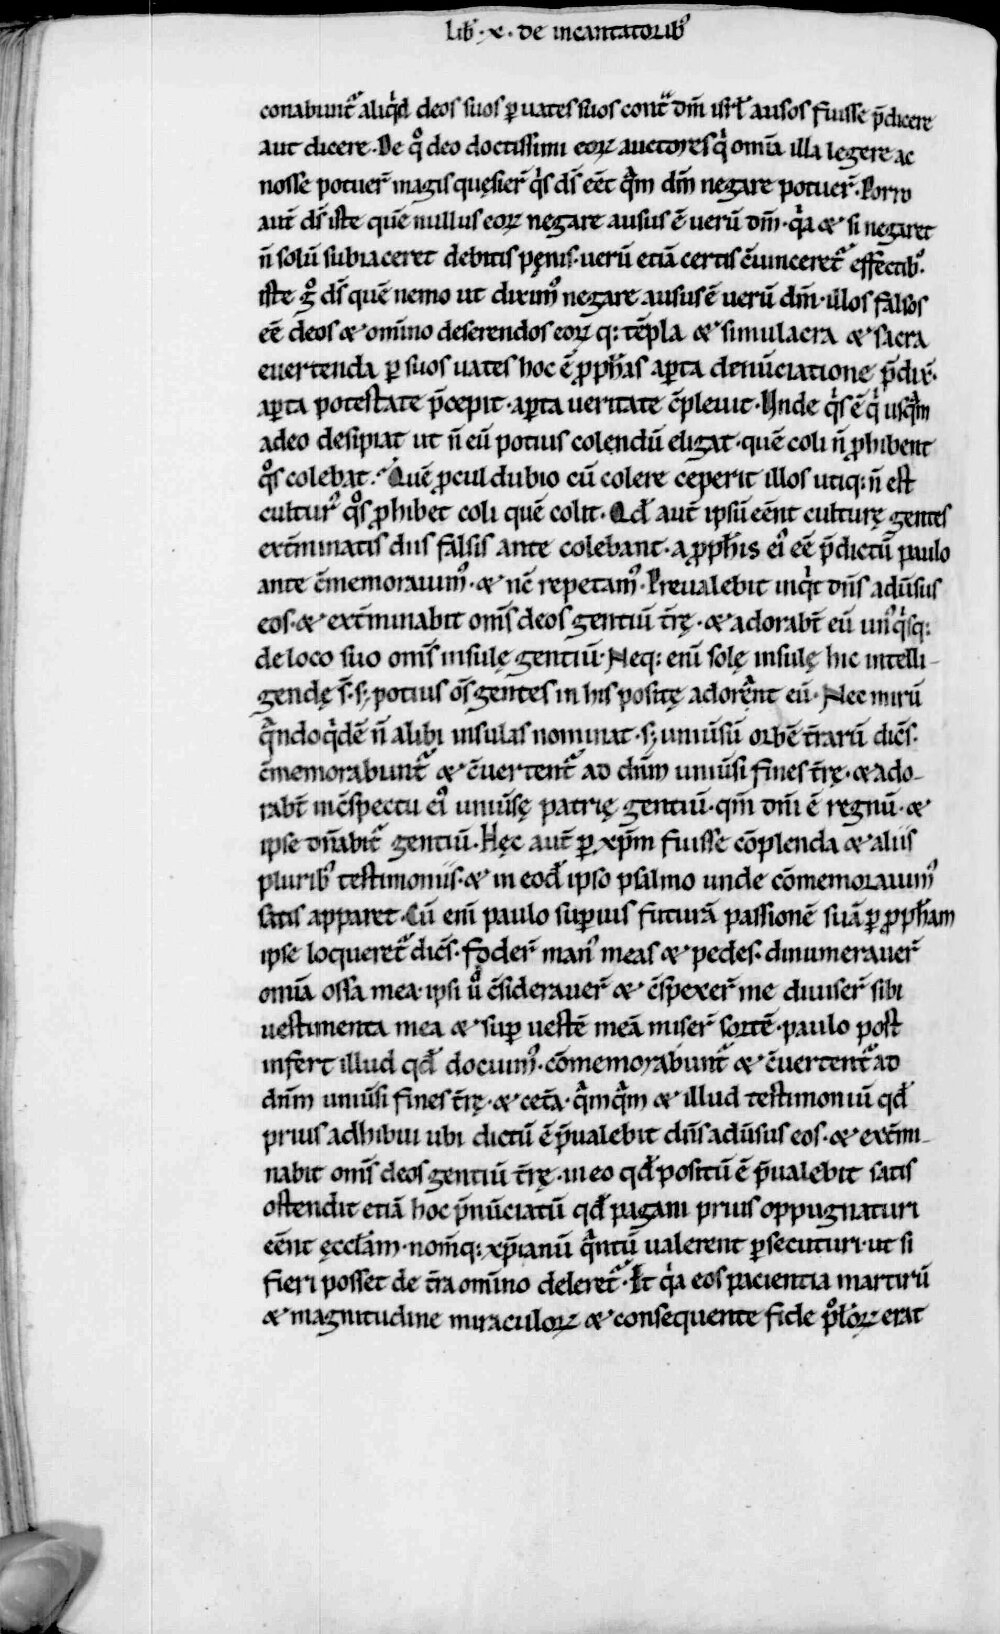 Lib̄·x·de incantatorib᷒
conabunt᷑ aliqͥd deos suos ꝑ uates suos cont̃ dm̄ isrl̄ ausos fuisse p̄dicere
aut dicere·De qͦ deo doctissimi eoꝝ auctores qͥ omīa illa legere ac
nosse potuer̄ magis quęsier̄ qͥs ds̄ eēt qͣm dm̄ negare potuer̄·Porro
aut̄ ds̄ iste quē nullus eoꝝ negare ausus ē uerū dm̄·qͥa & si negaret
n̄ solū subiaceret debitis pęnis·uerū etiā certis c̄uinceret᷑ effectib᷒·
iste gͦ ds̄ quē nemo ut dixim᷒ negare ausus ē uerū dm̄·illos falsos
eē deos & om̄ino deserendos eoꝝ q: tēpla & simulacra & sacra
euertenda ꝑ suos uates hoc ē ꝓph̄as aꝑta denūciatione p̄dix̄·
aꝑta potestate p̄cepit·aꝑta ueritate c̄pleuit·Unde qͥs ē qͥ usqͣm
adeo desipiat ut n̄ eū potius colendū eligat·quē coli n̄ ꝓhibent
qͦs colebat· Quē ꝓcul dubio cū colere ceperit illos utiq: n̄ est
cultur᷒ qͦs ꝓhibet coli quē colit·Qd̄ aut̄ ipsū eēnt culturę gentes
ext̄minatis diis falsis ante colebant·a ꝓph̄is ei᷒ eē p̄dictū paulo
ante c̄memorauim᷒·& nc̄ repetam᷒·Preualebit inqͥt dn̄s adūsus
eos·& ext̄minabit om̄s deos gentiū t̄rę·& adorabt̄ eū un᷒qͥsq:
de loco suo om̄s insulę gentiū·Neq: enī solę insulę hic intelli-
gendę s̄·sꝫ potius os̄ gentes in his positę adorēnt eū·Nec mirū
qͣndoqͥdē n̄ alibi insulas nominat·sꝫ uniūsū orbē t̄rarū dicēs·
c̄memorabunt᷑ & c̄uertent᷑ ad dn̄m uniūsi fines t̄rę·& ado-
rabt̄ in c̄spectu ei᷒ uniūsę patrię gentiū·qm̄ dn̄i ē regnū·&
ipse dn̄abit᷑ gentiū·Hęc aut̄ ꝑ xp̄m fuisse cōplenda & aliis
plurib᷒ testimoniis·& in eod̄ ipso psalmo unde cōmemorauim᷒
satis apparet·Cū enī paulo suꝑius futurā passionē suā ꝑ ꝓph̄am
ipse loqueret᷑ dicēs·Foder̄ man᷒ meas & pedes·dinumerauer̄
omīa ossa mea·ipsi uͦ c̄siderauer̄ & c̄spexer̄ me diuiser̄ sibi
uestimenta mea & suꝑ uestē meā miser̄ sortē·paulo post
infert illud qd̄ docuim᷒·cōmemorabunt᷑ & c̄uertent᷑ ad
dn̄m uniūsi fines t̄rę·& cet̄a·qͣmqͣm & illud testimoniū qd̄
prius adhibui ubi dictū ē p̄ualebit dn̄s adūsus eos·& ext̄mi-
nabit om̄s deos gentiū t̄rę·in eo qd̄ positū ē p̄ualebit satis
ostendit etiā hoc p̄nūciatū qd̄ pagani prius oppugnaturi
eēnt ęccl̄am·nom̄q: xp̄ianū qͣntū ualerent ꝑsecuturi·ut si
fieri posset de t̄ra om̄ino deleret᷑·Et qͥa eos pacientia martirū
& magnitudine miraculoꝝ & consequente fide pͦloꝝ erat